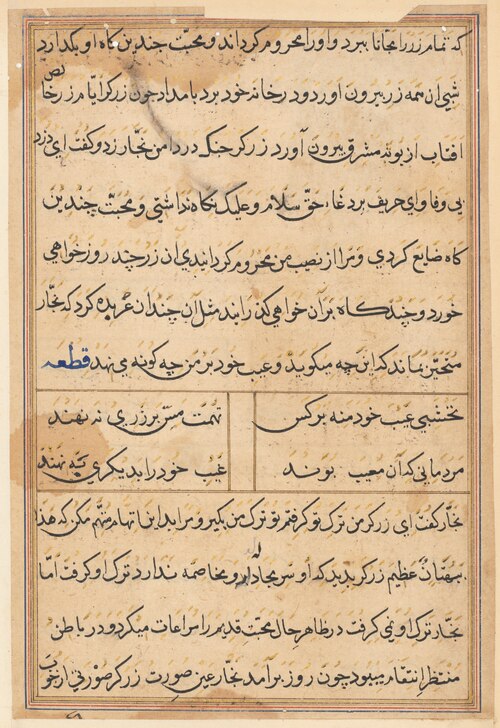 که تمام زر را مجانا ببرد و او را محروم گرداند و محبت چندین گاه او بگذارد
شبی آن همه زر بیرون آورد و در خانه خود برد بامداد چون زرگر ایام زر خالص
آفتاب از بوته مشرق بیرون آورد زرگر چنگ در دامن نجار زد و گفت ای دزد
بی وفا و ای حریف پر دغا حق سلام و علیک نگاه نداشتی و محبت چندین
گاه ضایع کردی و مرا از نصیب من محروم گردانیدی آن زر چند روز خواهی
خورد و چند گاه بر آن خواهی گذرانید مثل آن چندان عربده کرد که نجار
متحیر بماند که این چه میگوید و عیب خود بر من چه گونه می نهد قطعه
نخشبی عیب خود منه بر کس تهمت مس بر زری نه نهند
مردمانی که آن معیب بوند عیب خود را بدیگری چه نهند
نجار گفت ای زرگر من ترک تو گرفتم تو ترک من بگیر و مرا بدین اتهام متهم مکن که هذا
بهتان عظیم زرگر بدید که او سر مجادله و مخاصمه ندارد ترک او گرفت اما
نجار ترک او نمی گرفت در ظاهر حال محبت قدیم را مراعات میکرد و در باطن
منتظر انتقام میبود چون روز برآمد نجار عین صورت زرگر صورتی از چوب